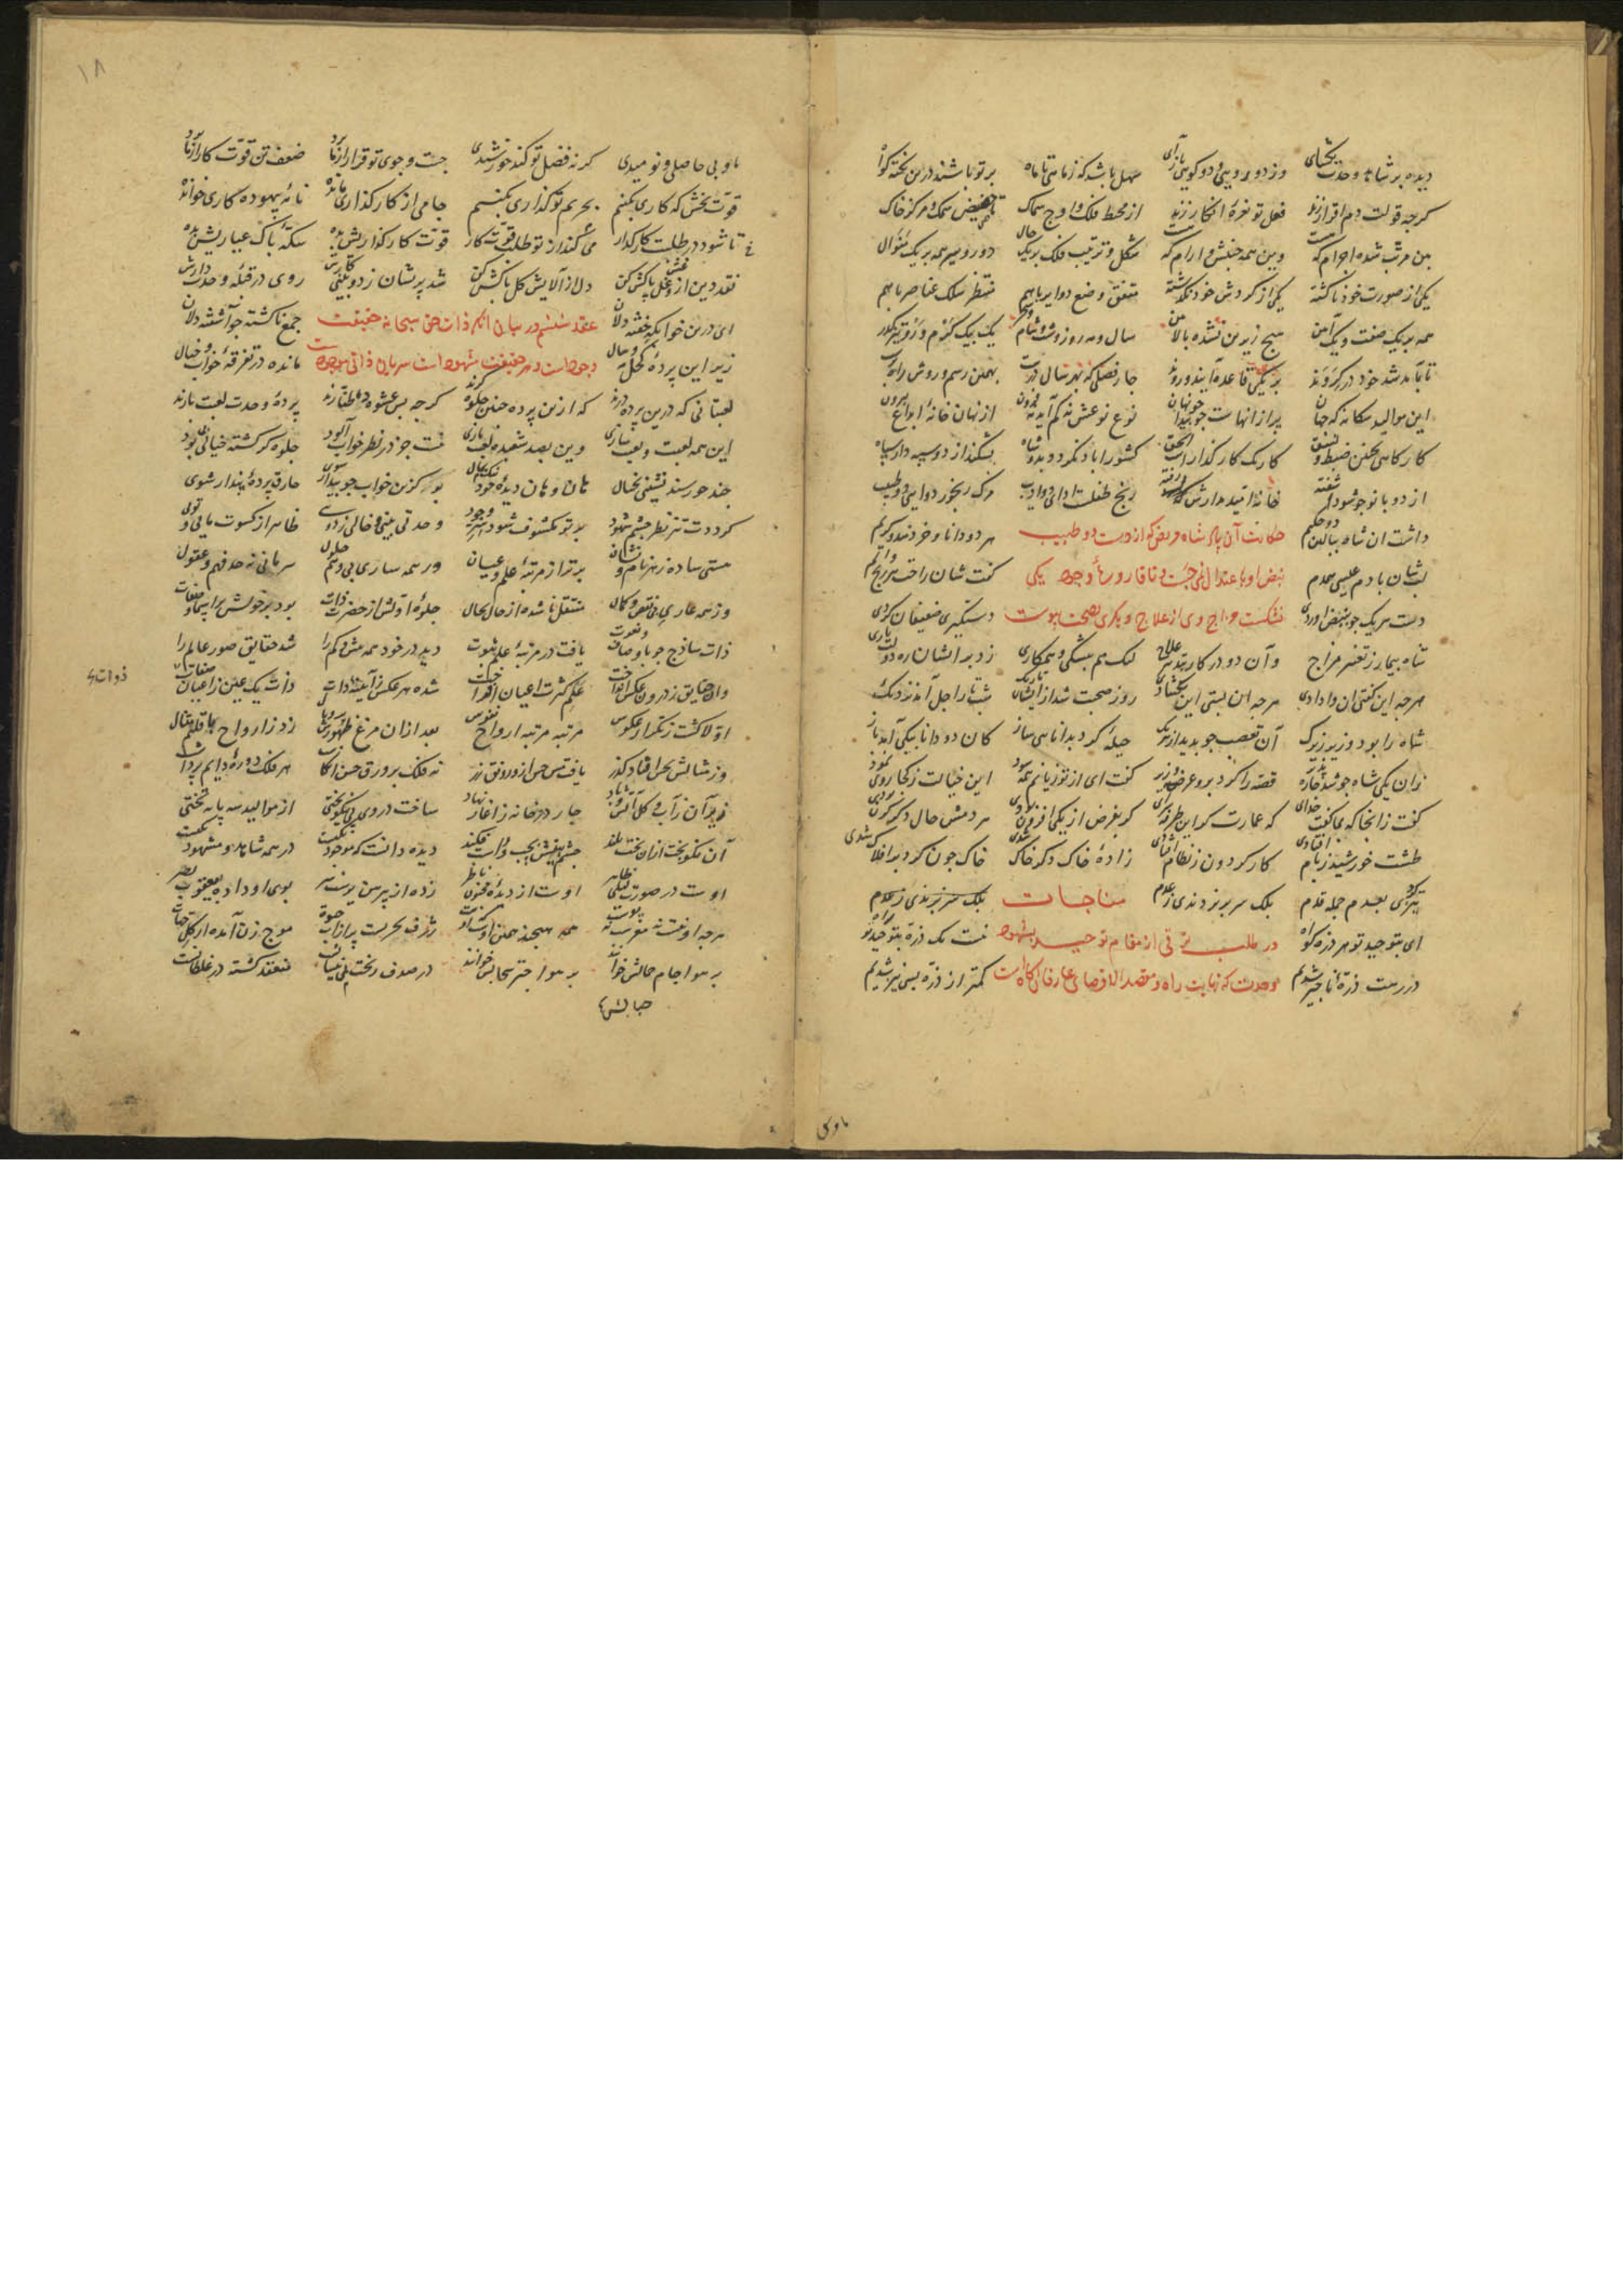 دیده بر شاهد وحدت بگشای وز دو رویی و دو گویی بازآی سهل باشد که ز ماهی تا ماه بر تو باشند درین نکته گواه
گرچه قولت دم اقرار زند فعل تو نعرهٔ انکار زند از محیط فلک و اوج سماک تا حضیض سمک و مرکز خاک
بین مرتب شده اجرام که هست وین همه جنبش و آرام که هست شکل و ترتیب فلک بر یک حال دور و سیر همه بر یک منوال
یکی از صورت خود ناگشته یکی از گردش خود نگذشته متفق وضع دوایر با هم منتظم سلک عناصر با هم
همه بر یک صفت و یک آیین هیچ زیرین نشده بالایین سال و مه روز و شب و شام و سحر یک بیک گرم و زو یکدیگر
تا بآمد شد خود در گروند بر یکی قاعده آیند و روند چار فصلی که بهر سال درست بهمین رسم و روش راه
این موالید سه گانه که جهان پر از آنهاست چو پیدا چو نهان نوع نوعش نه کم آید نه فزون از نهان خانهٔ ابداع برون
کارگاهی بچنین ضبط و نسق کار یک کارگذار است الحق کشور آباد نگردد بدو شاه بشکند از دو سپهدار سپاه
از دو بانو چو شود آشفته خانه امید مدارش رفته رنج طفلست ادای دو ادیب مرگ رنجور دوای دو طبیب
داشت آن شاه ببالین دو حکیم حکایت آن پادشاه مریض که از دست دو طبیب هر دو دانا و خردمند و کریم
لبشان با دم عیسی همدم نبض او باعتدال نمی جست و تا قاروره یکی گفت شان راحت هر رنج و الم
دست هر یک چو بنبض آوردی نشکست مزاج وی از علاج دیگری بصحت نپیوست دستگیری ضعیفان کردی
شاه بیمار ز تغییر مزاج وآن دو در کار بتدبیر علاج لیک هم پیشگی و همکاری زد بر ایشان ره دولت یاری
هرچه این گفتی آن وادادی هرچه آن بستی این بگشادی روز صحت شد از ایشان تاریک شب تار اجل آمد نزدیک
شاه را بود وزیر زیرک آن تعصب چو بدید از هر یک حیله کرد بدانایی ساز کان دو دانا بیکی آمد باز
زان یکی شاه چو شد چاره پذیر قصه را کرد برو عرض وزیر گفت ای از تو زیانم همه سود این خیالت ز کجا روی نمود
گفت زانجا که همی گفت خدای که عمارت گر این طرفه سرای گر بفرض از یکی افزون بودی هر دمش حال دگرگون بودی
طشت خورشید ز بام افتادی کار گردون ز نظام افتادی زادهٔ خاک دگر خاک شدی خاک چون گرد بر افلاک شدی
تیزتر پی بعدم جمله قدم بلک سر بر نزدندی ز عدم مناجات بلک سر بر نزدندی ز عدم
ای بتوحید تو هر ذره گواه در طلب ترقی از مقام توحید بشهود نیست یک ذره بتوحید تو راه
در رهت ذرهٔ ناچیز شدیم وحدت که نهایت راه و مقصد الاقصای عارفان آگاهست کمتر از ذره بسی نیز شدیم
ماوبی
۱۸
ما و بی حاصلی و نومیدی گر نه فضل تو کند خورشیدی جست و جوی تو قرار از ما برد ضعف تن قوت کار از ما برد
قوت بخش که کاری بکنیم بحریم تو گذاری بکنیم جامی از کارگذاری مانده نامهٔ بیهوده کاری خوانده
تا شود در طلبت کارگذار می گذارد ز تو طلب قوت کار قوت کارگذاریش بده سکهٔ پاک عیاریش بده
نقد دین از غش و غل پاکش کن دل از آلایش گل پاکش کن شد پریشان ز دو بینی کارش روی در قبلهٔ وحدت دارش
ای درین خوابگه خفته دلان عقد ششم در بیان آنکه ذات حق سبحانه حقیقت جمع ناگشته چو آشفته دلان
زیر این پردهٔ کحل مثال وجودست و هر حقیقت مشهود است سریان ذاتی موجود است مانده در تفرقهٔ خواب و خیال
لعبتانی که درین پرده درند که ازین پرده چنین جلوه گرند گرچه بس عشوه ده و طنازند پردهٔ وحدت لعبت بازند
این همه لعبت و لعبت سازی وین بصد شعبده لعبت بازی نیست جز در نظر خواب آلود جلوه گر گشته خیالی بی بود
چند خرسند نشینی بخیال هان و هان دیدهٔ خود نیک بمال بو که زین خواب چو بیدار شوی خارق پردهٔ پندار شوی
گرددت تیز نظر چشم شهود بر تو مکشوف شود سر وجود وحدتی بینی خالی ز دوی ظاهر از کسوت مایی و توی
هستی ساده ز هر نام و نشان برتر از مرتبهٔ علم و عیان در همه ساری بی وهم حلول سریانی نه حد فهم و عقول
وز همه عاری بی نقص و کمال منتقل ناشده از حال بحال جلوهٔ اولش از حضرت ذات بود بر خویش بر اسما و صفات
ذات ساذج چو باوصاف و نعوت یافت در مرتبهٔ علم ثبوت دید در خود همه بیش و کم را شد حقایق صور عالم را
وان حقایق ز درون عکس انداخت علم کثرت اعیان افراخت شده هر عکس ز آیینهٔ ذات ذات یک عین ز اعیان صفات
ذوات
اولا گشت ز یکبار عکوس مرتبه مرتبه ارواح نفوس بعد ازان مرغ ظهورش پر و بال زد ز ارواح باقلیم مثال
وز مثالش بحس افتاد گذر یافت حس از رونق زر نه فلک بر ورق حس انگاشت هر فلک دورهٔ دایم برداشت
زیر آن ز آب و گل آتش و باد چار در خانه ز آغاز نهاد ساخت در وی پی نیکو بختی از موالید سه پایه تختی
آن نکوبخت ازان تخت بلند چشم بینش بچپ و راست فکند دیده دانست که موجود یکیست در همه شاهد و مشهود یکیست
اوست در صورت لیلی ظاهر اوست از دیدهٔ مجنون ناظر زده از پیرهن یوسف سر بوی او داده بیعقوب بصر
هرچه او نیست نه مغزست نه پوست همه هیچند همین اوست که اوست ژرف بحریست پر از آب حیوة موج زن آمده از کل جهات
بر هوا جام حبابش خوانند بر هوا چتر سحابش خوانند در صدف ریخت پی نیسانست منعقد گشته در غلطانست
حبابش